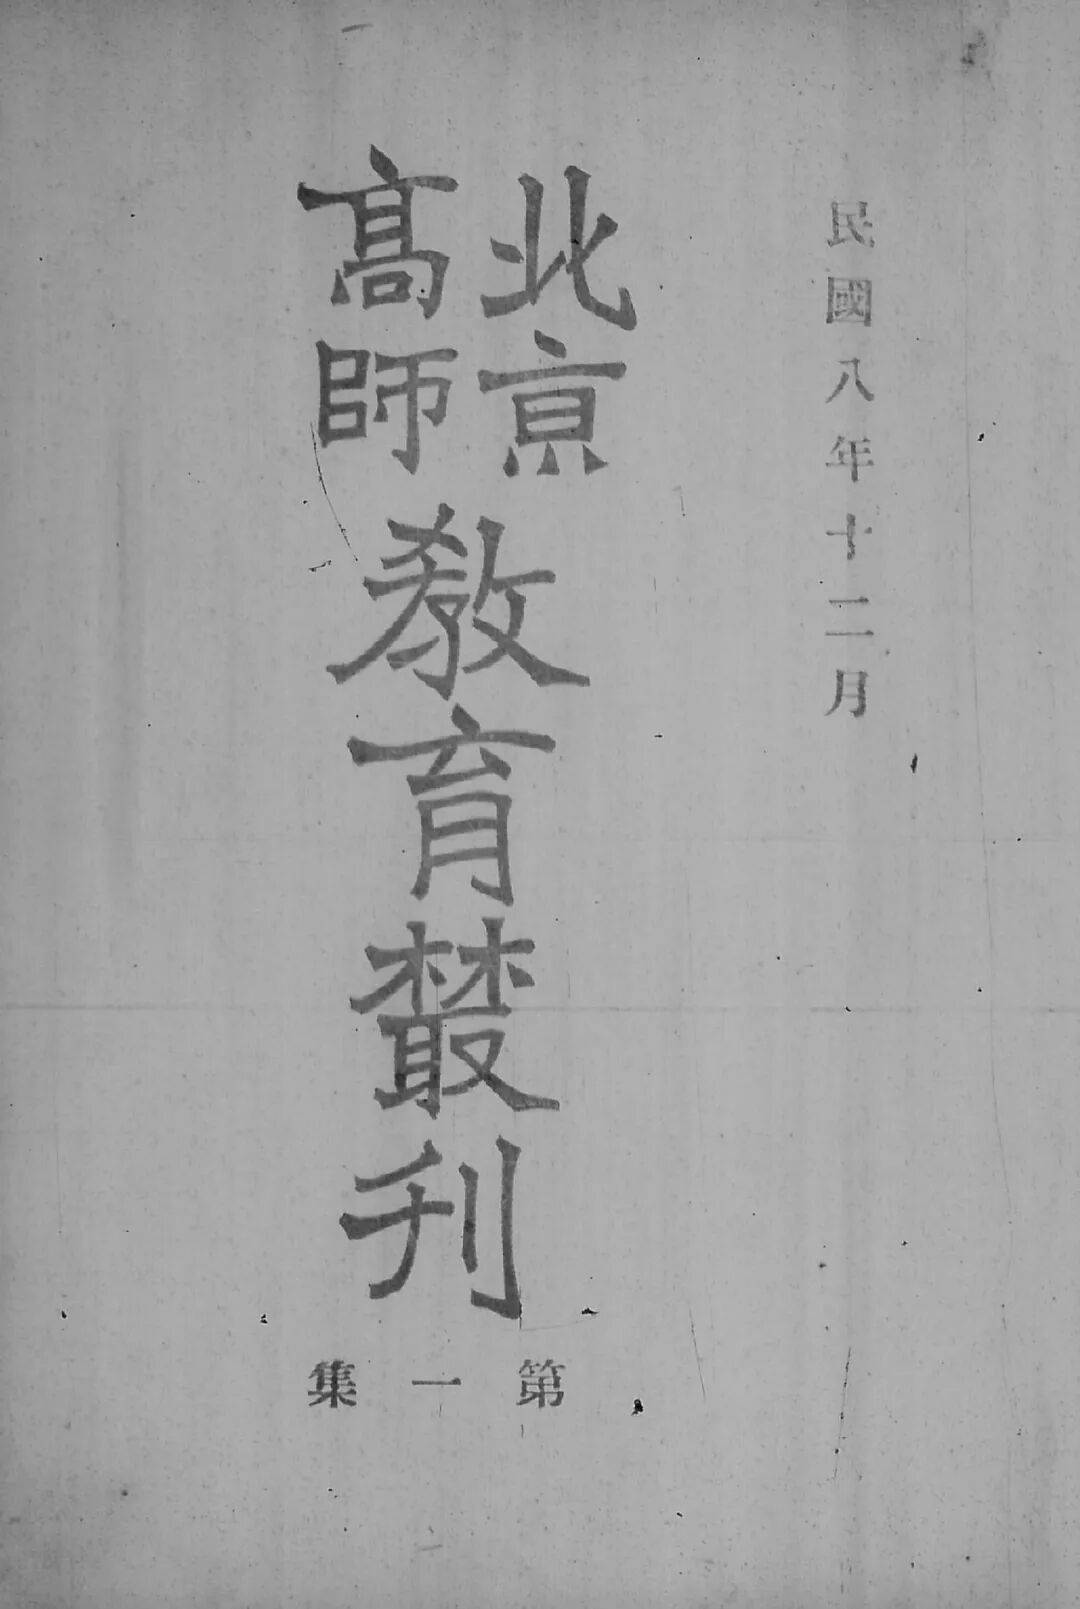 民國八年十二月
北京
高師
教育叢刊
第一集